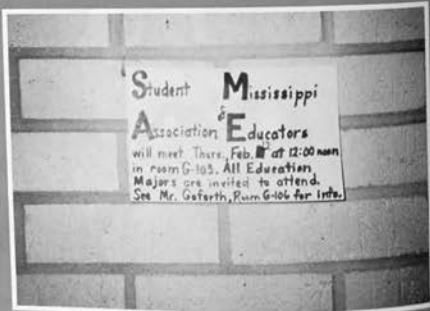 Student Mississippi
&
Association Educators
will meet Thurs., Feb. 12 at 12:00 noon
in room G-103. All Education
Majors are invited to attend.
See Mr. Goforth, Rum G-106 for info.